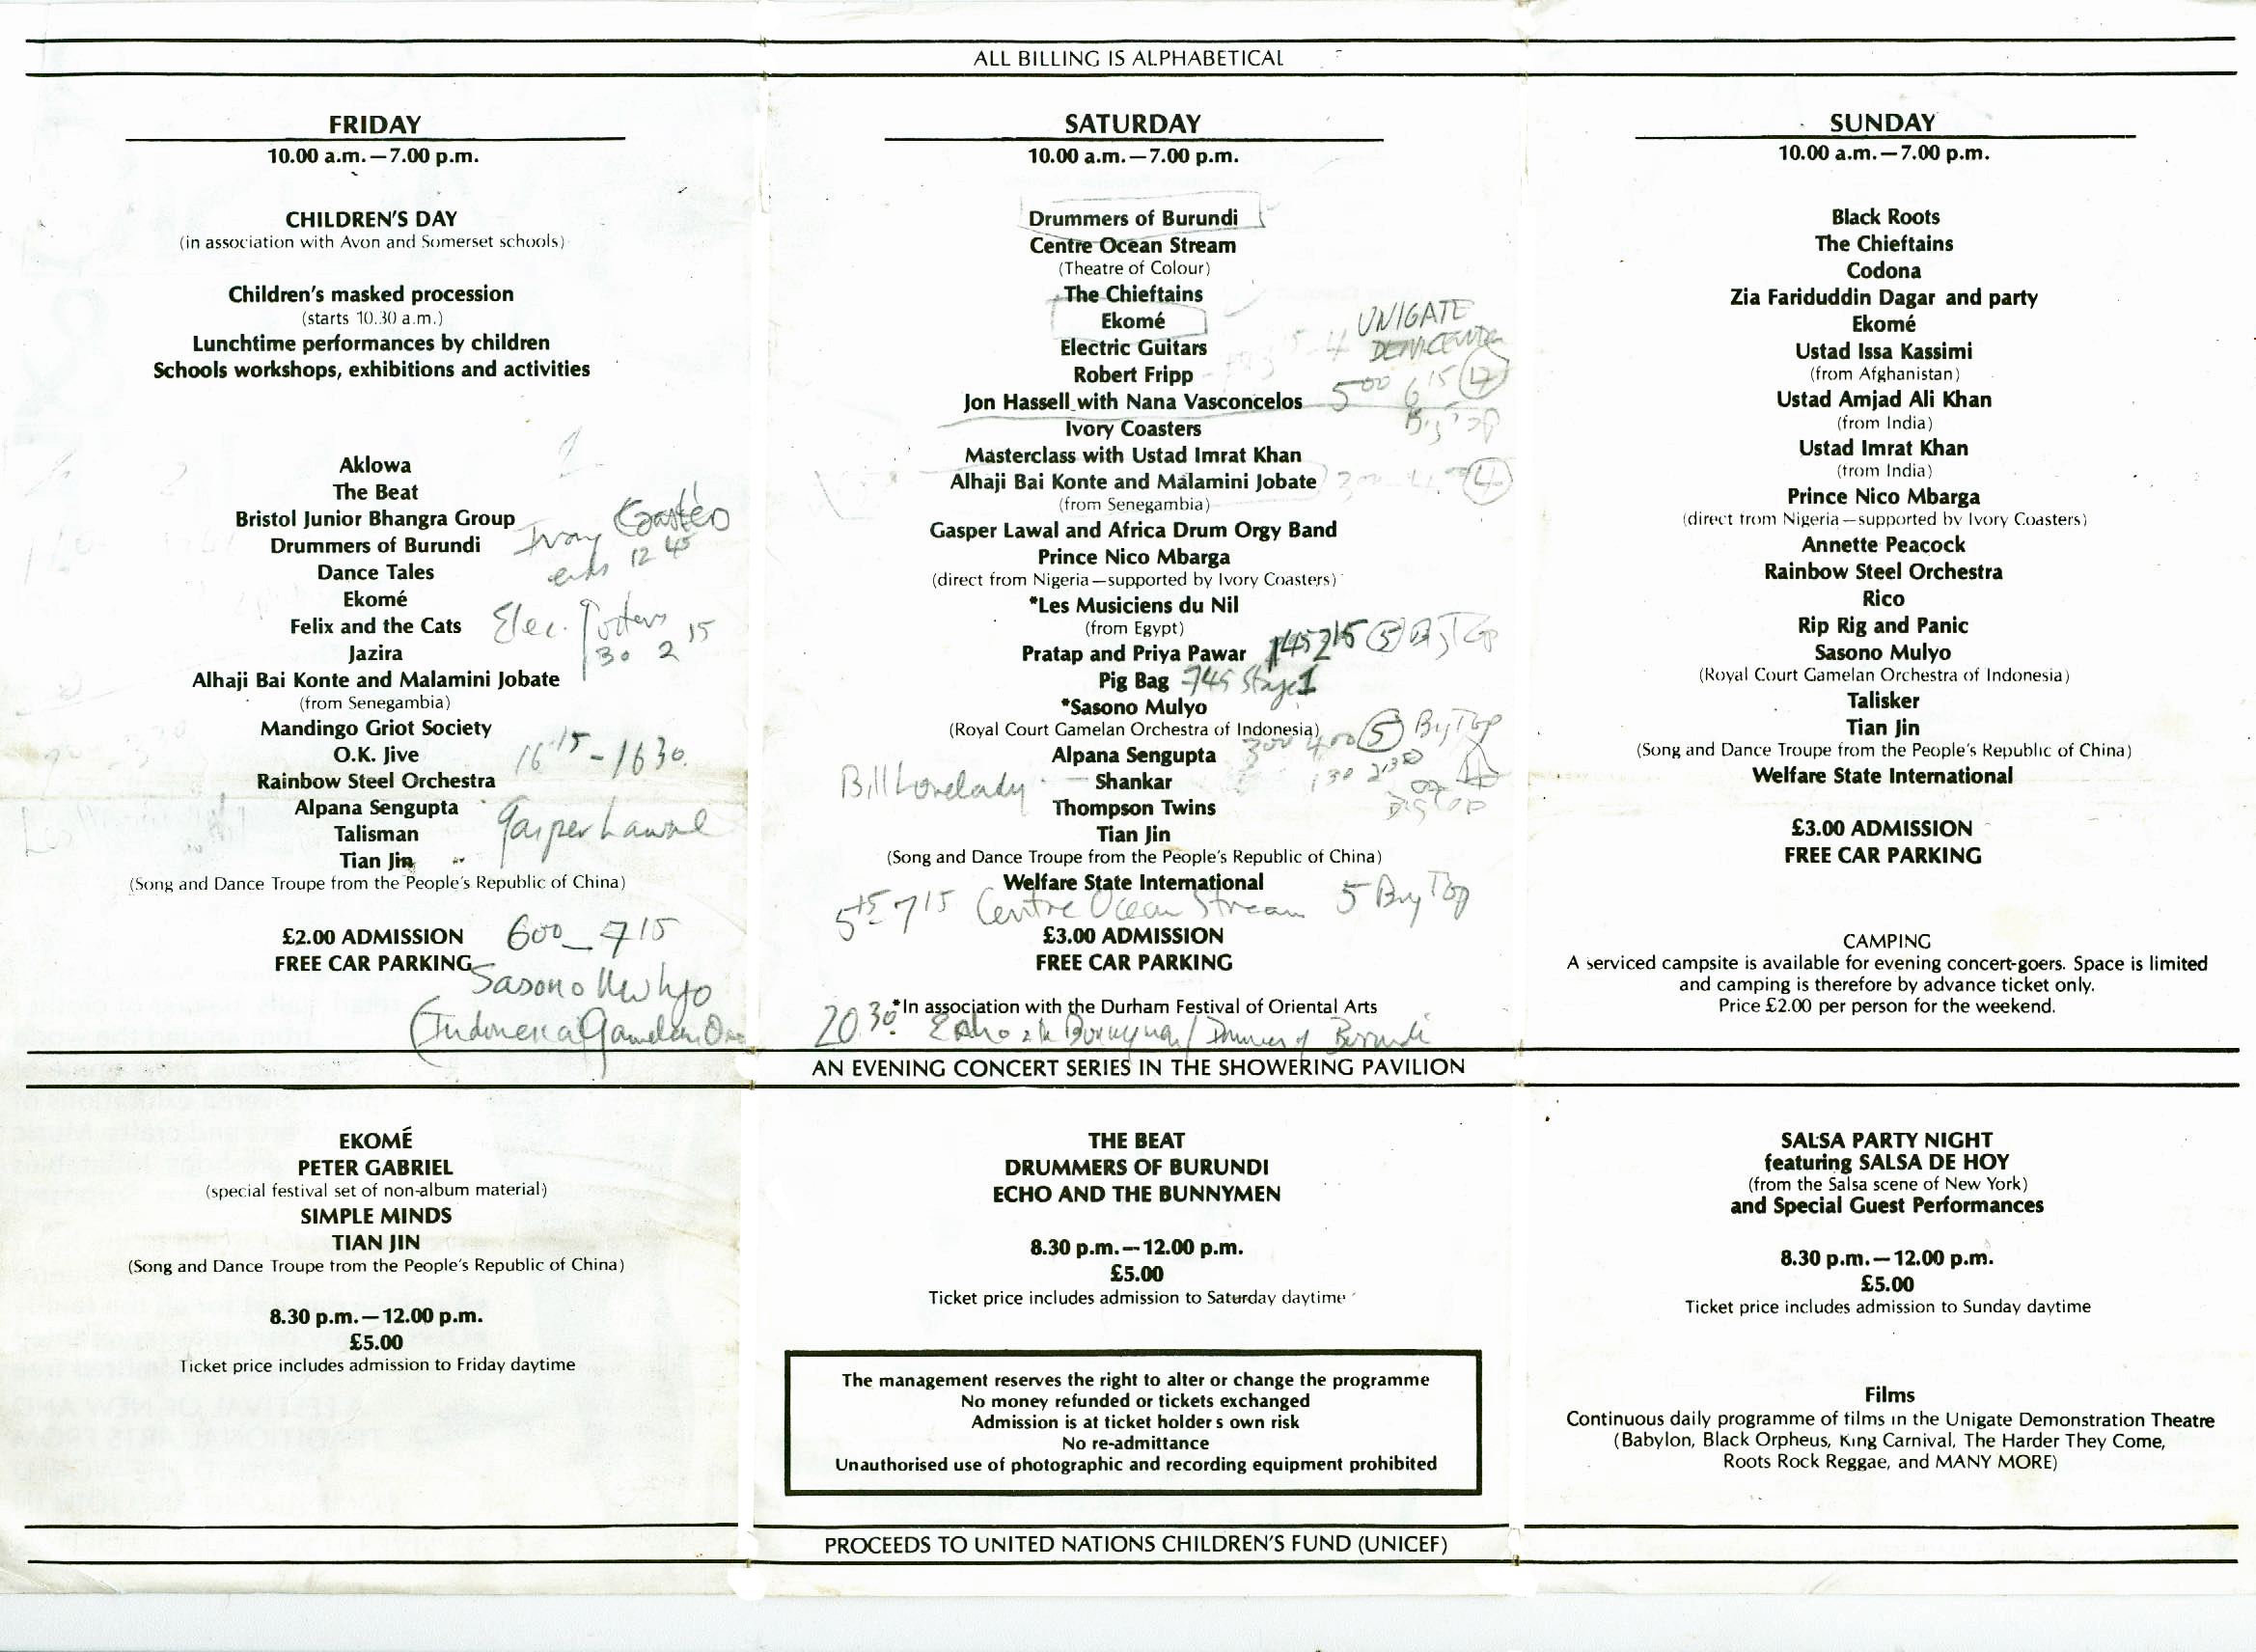 ALL BILLING IS ALPHABETICAL
FRIDAY
10.00 a.m.—7.00 p.m.
CHILDREN'S DAY
(in association with Avon and Somerset schools)
Children's masked procession
(starts 10.30 a.m.)
Lunchtime performances by children
Schools workshops, exhibitions and activities
Aklowa
The Beat
Bristol Junior Bhangra Group
Drummers of Burundi
Dance Tales
Ekomé
Felix and the Cats
Jazira
Alhaji Bai Konte and Malamini Jobate
(from Senegambia)
Mandingo Griot Society
O.K. Jive
Rainbow Steel Orchestra
Alpana Sengupta
Talisman
Tian Jin
(Song and Dance Troupe from the People's Republic of China)
£2.00 ADMISSION
FREE CAR PARKING
Ivory Coasters
ends 12 45
Elec.
30 2 15
16 15 - 1630
Gasper Lawal
600 - 715
Sasono Mulyo
SATURDAY
10.00 a.m.—7.00 p.m.
Drummers of Burundi
Centre Ocean Stream
(Theatre of Colour)
The Chieftains
Ekomé
Electric Guitars
Robert Fripp
Jon Hassell with Nana Vasconcelos
Ivory Coasters
Masterclass with Ustad Imrat Khan
Alhaji Bai Konte and Malamini Jobate
(from Senegambia)
Gasper Lawal and Africa Drum Orgy Band
Prince Nico Mbarga
(direct from Nigeria—supported by Ivory Coasters)
*Les Musiciens du Nil
(from Egypt)
Pratap and Priya Pawar 145 215 5 Big Top
Pig Bag 745 Stage 1
*Sasono Mulyo
(Royal Court Gamelan Orchestra of Indonesia)
Alpana Sengupta 300 400 5 Big Top
Bill Lovelady Shankar 130 230
Thompson Twins Big Top
Tian Jin
(Song and Dance Troupe from the People's Republic of China)
Welfare State International
515 - 715 Centre Ocean Stream 5 Big Top
£3.00 ADMISSION
FREE CAR PARKING
*In association with the Durham Festival of Oriental Arts
20.30 Echo & the Bunnymen / Drummers of Burundi
UNIGATE
500 615 4
Big Top
SUNDAY
10.00 a.m.—7.00 p.m.
Black Roots
The Chieftains
Codona
Zia Fariduddin Dagar and party
Ekomé
Ustad Issa Kassimi
(from Afghanistan)
Ustad Amjad Ali Khan
(from India)
Ustad Imrat Khan
(from India)
Prince Nico Mbarga
(direct from Nigeria—supported by Ivory Coasters)
Annette Peacock
Rainbow Steel Orchestra
Rico
Rip Rig and Panic
Sasono Mulyo
(Royal Court Gamelan Orchestra of Indonesia)
Talisker
Tian Jin
(Song and Dance Troupe from the People's Republic of China)
Welfare State International
£3.00 ADMISSION
FREE CAR PARKING
CAMPING
A serviced campsite is available for evening concert-goers. Space is limited
and camping is therefore by advance ticket only.
Price £2.00 per person for the weekend.
AN EVENING CONCERT SERIES IN THE SHOWERING PAVILION
EKOMÉ
PETER GABRIEL
(special festival set of non-album material)
SIMPLE MINDS
TIAN JIN
(Song and Dance Troupe from the People's Republic of China)
8.30 p.m.—12.00 p.m.
£5.00
Ticket price includes admission to Friday daytime
THE BEAT
DRUMMERS OF BURUNDI
ECHO AND THE BUNNYMEN
8.30 p.m.—12.00 p.m.
£5.00
Ticket price includes admission to Saturday daytime
The management reserves the right to alter or change the programme
No money refunded or tickets exchanged
Admission is at ticket holders own risk
No re-admittance
Unauthorised use of photographic and recording equipment prohibited
SALSA PARTY NIGHT
featuring SALSA DE HOY
(from the Salsa scene of New York)
and Special Guest Performances
8.30 p.m.—12.00 p.m.
£5.00
Ticket price includes admission to Sunday daytime
Films
Continuous daily programme of films in the Unigate Demonstration Theatre
(Babylon, Black Orpheus, King Carnival, The Harder They Come,
Roots Rock Reggae, and MANY MORE)
PROCEEDS TO UNITED NATIONS CHILDREN'S FUND (UNICEF)